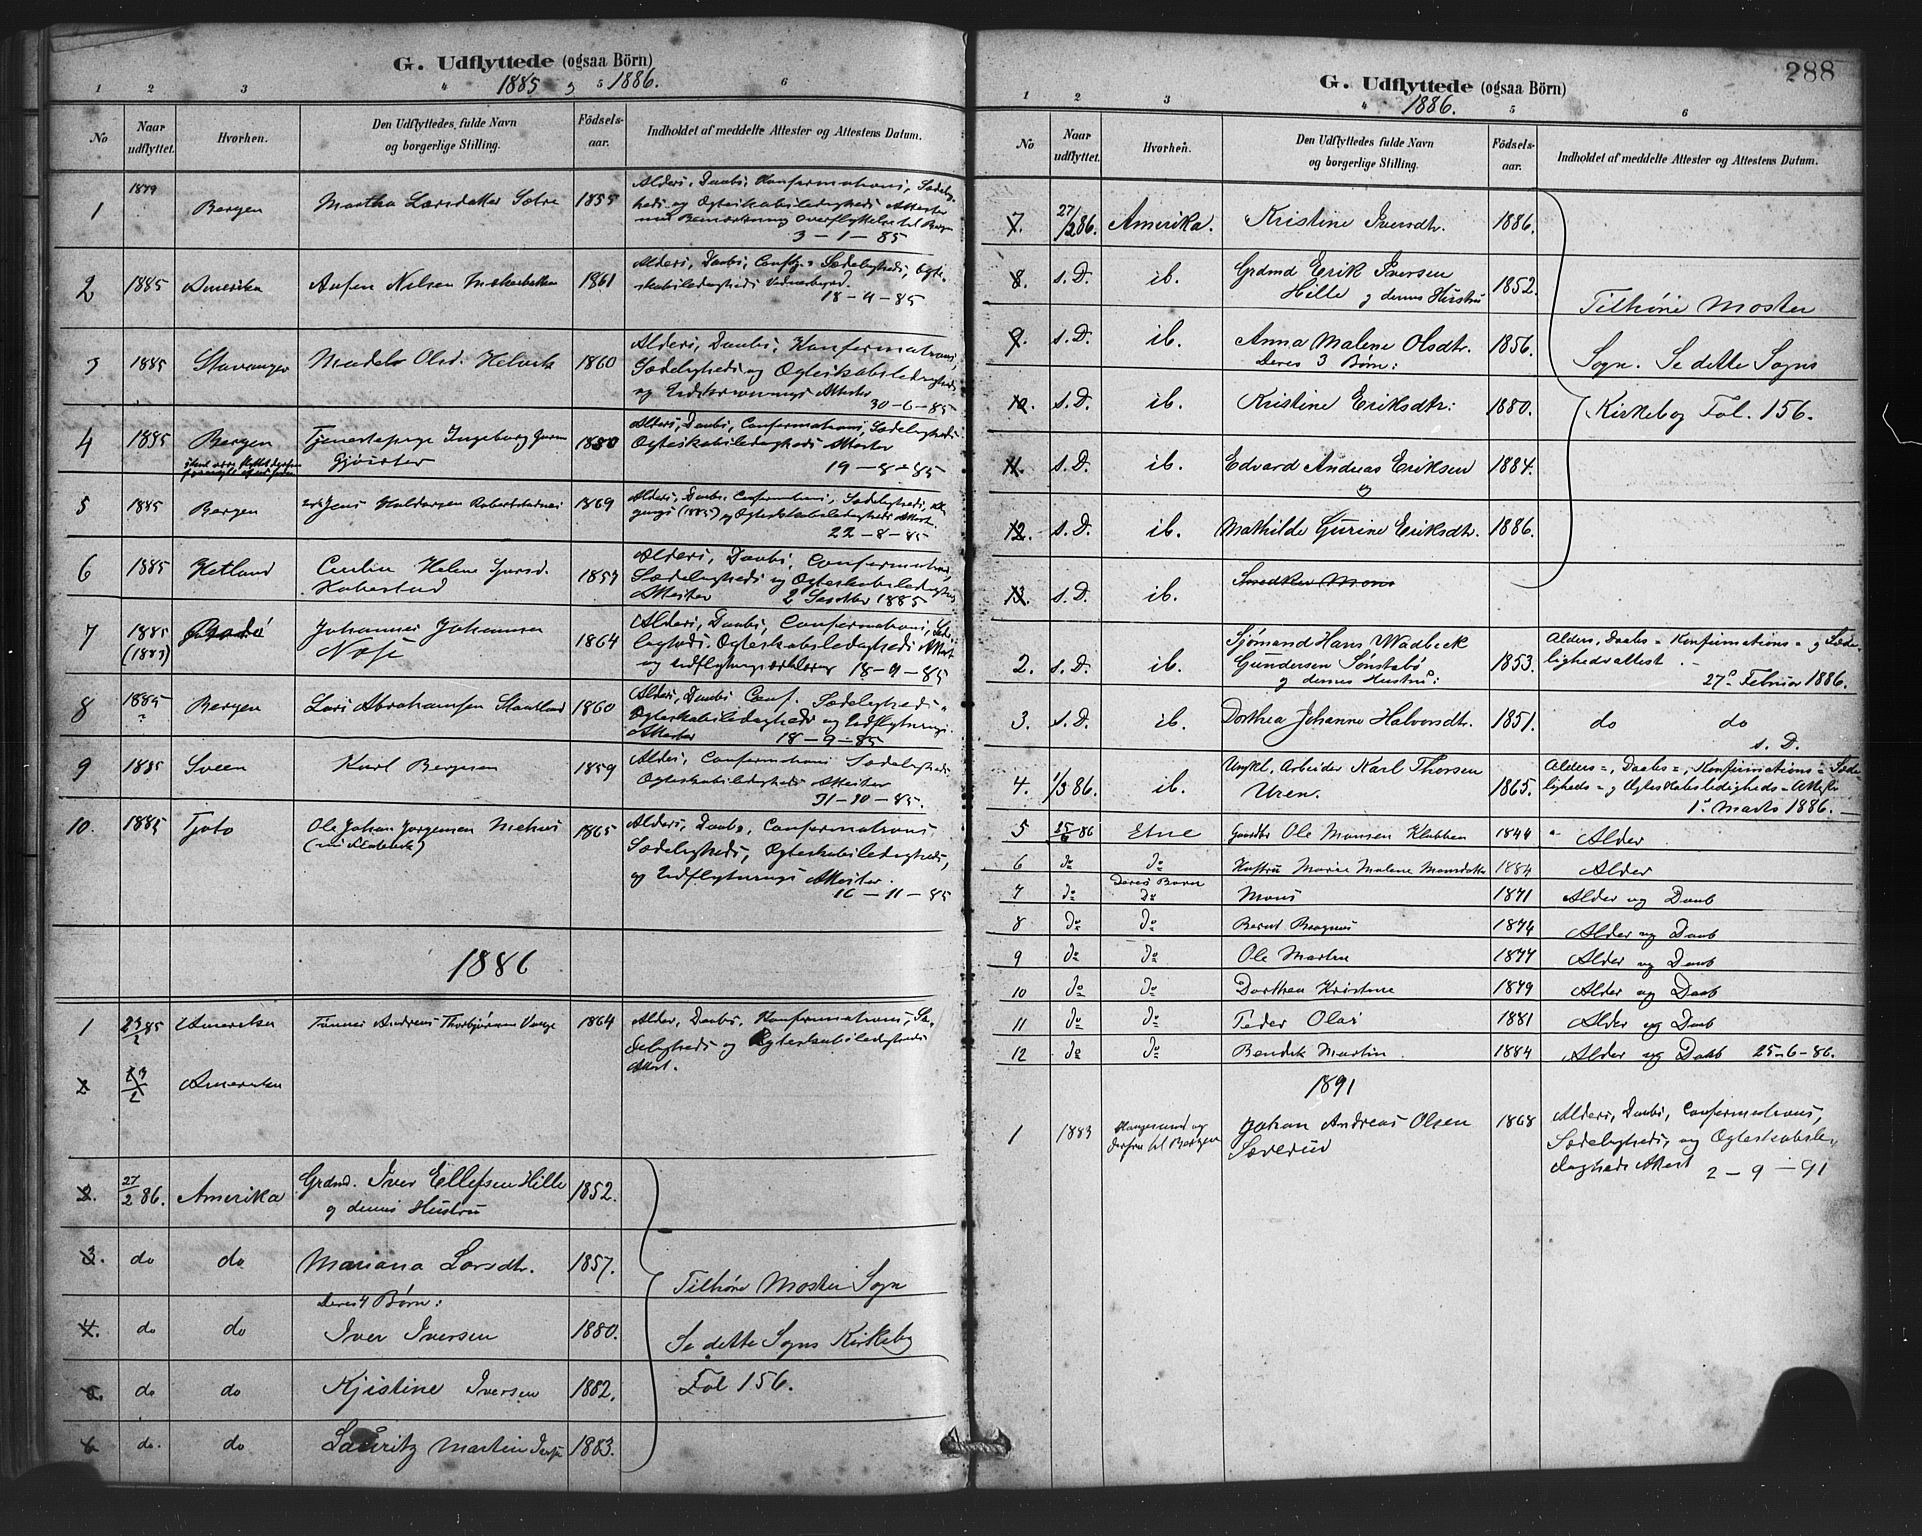 G. Udflyttede (ogsaa Börn)
1885 og 1886.
1 2 3 4 5 6
No
Naar udflyttet.
Hvorhen.
Den Udflyttedes, fulde Navn og borgerlige Stilling.
Födsels-aar.
Indholdet af meddelte Attester og Attestens Datum.
1 1879 Bergen Martha Larsdatter Sætre 1855 Alders, Daabs, Konfirmations, Sædelig-
heds og Ægteskabsledigheds Attester
med Bemærkning overflyttelse til Bergen
3-1-85
2 1885 Amerika Nilsen 1861 Alders, Daabs, Sædeligheds, Ægte-
skabsledigheds
18-4-85
3 1885 Stavanger Olsd. Helvik 1860 Alders, Daabs, Konfirmations,
Sædeligheds og Ægteskabsledigheds
og Attester
30-6-85
4 1885 Bergen Tjenestepige Ingeborg 1850 Alders, Daabs, Confirmations, Sædeligheds
Ægteskabsledigheds Attester
19-8-85
5 1885 Bergen Jens Haldorsen 1869 Alders, Daabs, Confirmations, Sædeligheds,
(1885) og Ægteskabsledigheds Attest.
22-8-85
6 1885 Hetland Helene 1857 Alders, Daabs, Confirmations,
Sædeligheds og Ægteskabsledigheds
Attester 2 1885
7 1885 (1883) Johannes Johannesen 1864 Alders, Daabs, Confirmations, Sæde-
ligheds, Ægteskabsledigheds Attest
og udflytningserklæring 18-9-85
8 1885 Bergen Lars Abrahamsen 1860 Alders, Daabs, Conf. Sædeligheds-
Ægteskabsledigheds og Udflytnings
Attester 18-9-85
9 1885 Sveen Karl Bergesen 1859 Alders, Confirmations Sædeligheds,
Ægteskabsledigheds Attester
31-10-85.
10. 1885 Ole Johan Jørgensen 1865 Alders, Daabs, Confirmations,
Sædeligheds, Ægteskabsledigheds,
og Udflytnings Attester.
16-11-85
1886
1 85 Amerika Andreas Thorbjørnsen 1864 Alder, Daabs, Konfirmations, Sæ-
deligheds og Ægteskabsledigheds
Attest.
2 Amerika
2. 27/2 86. Amerika Grdmd. Iver Ellefsen Hille 1852.
og dennes Hustru
3. do do Mariana Larsdtr. 1857. Tilhøre Moster Sogn
Deres 4 Børn:
4. do do Iver Iversen 1880. Se dette Sogns Kirkebog
5. do do Kjistine Iversen 1882. Fol 156.
6 do. do Lauritz Martin 1883.
288
G. Udflyttede (ogsaa Börn)
1886.
1 2 3 4 5 6
No
Naar udflyttet.
Hvorhen.
Den Udflyttedes fulde Navn og borgerlige Stilling.
Födsels-aar.
Indholdet af meddelte Attester og Attestens Datum.
7. 27/2 86. Amerika. Kristine Iversdtr. 1886.
8. s.D. ib. Grdmd Erik Iversen 1852.
Hille og dennes Hustru Tilhøre Moster
9. s.D. ib. Anna Malene Olsdtr. 1856. Sogn. Se dette Sogns
Deres 3 Børn:
10. s.D. ib. Kristine Eriksdtr: 1880. Kirkebog Fol. 156.
11. s.D. ib. Edvard Andreas Eriksen 1884.
og
12. s.D. ib. Mathilde Gurine Eriksdtr. 1886.
13. s.D. ib.
2. s.D. ib. Sjømand Hans Wadbeck
Gundersen Sønstabø 1853. Alders, Daabs = Konfirmations = og Sæde-
lighedsattest.
og dennes Hustru: 27de Februar 1886.
3. s.D. ib. Dorthea Johanne Halvorsdtr. 1851. do do
s.D.
4. 1/3 86. ib. Ungkl. Arbeider Karl Thorsen
Uren. 1865. Alders=, Daabs=, Konfirmations= Sæde-
ligheds= og Ægteskabsledigheds=Attester
1ste Marts 1886.
5 25/6 86 Etne Gaardbr Ole Monsen Klubben 1844 Alder
6 do do Hustru Marie Malene Monsdatter Alder
Deres Børn
7 do do Mons 1871 Alder og Daab
8 do do Bernt 1874 Alder og Daab
9 do do Ole Martin 1877 Alder og Daab
10 do do Dorthea Kristine 1879 Alder og Daab
11 do do Peder Olai 1881 Alder og Daab
12 do do Bendik Martin 1884 Alder og Daab 25-6-86.
1891
1 1883 Haugesund og
derfra til Bergen Johan Andreas Olsen
Sæverud 1868 Alders, Daabs, Confirmations,
Sædeligheds, og Ægteskabsle-
digheds Attest 2-9-91